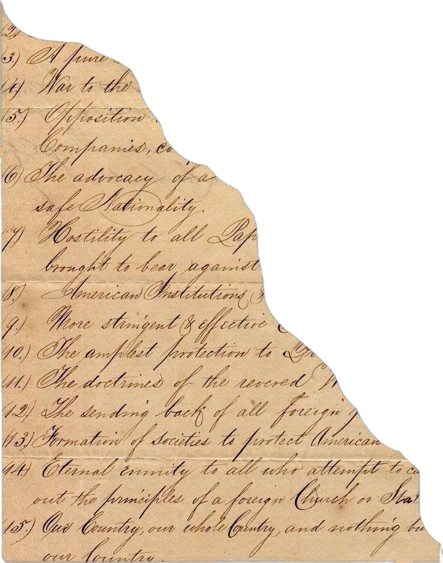 3) A pure
4) War to the
5) Opposition
Companies, co
6) The advocacy of a
safe Nationality.
7) Hostility to all Pap
brought to bear against
8) American Institutions
9) More stringent & effective
10.) The amplest protection to
11.) The doctrines of the revered W
12.) The sending back of all foreign
13.) Formation of societies to protect American
14.) Eternal enmity to all who attempt to ca
out the principles of a foreign Church or Stat
15.) Our Country, our whole Country, and nothing bu
our Country.